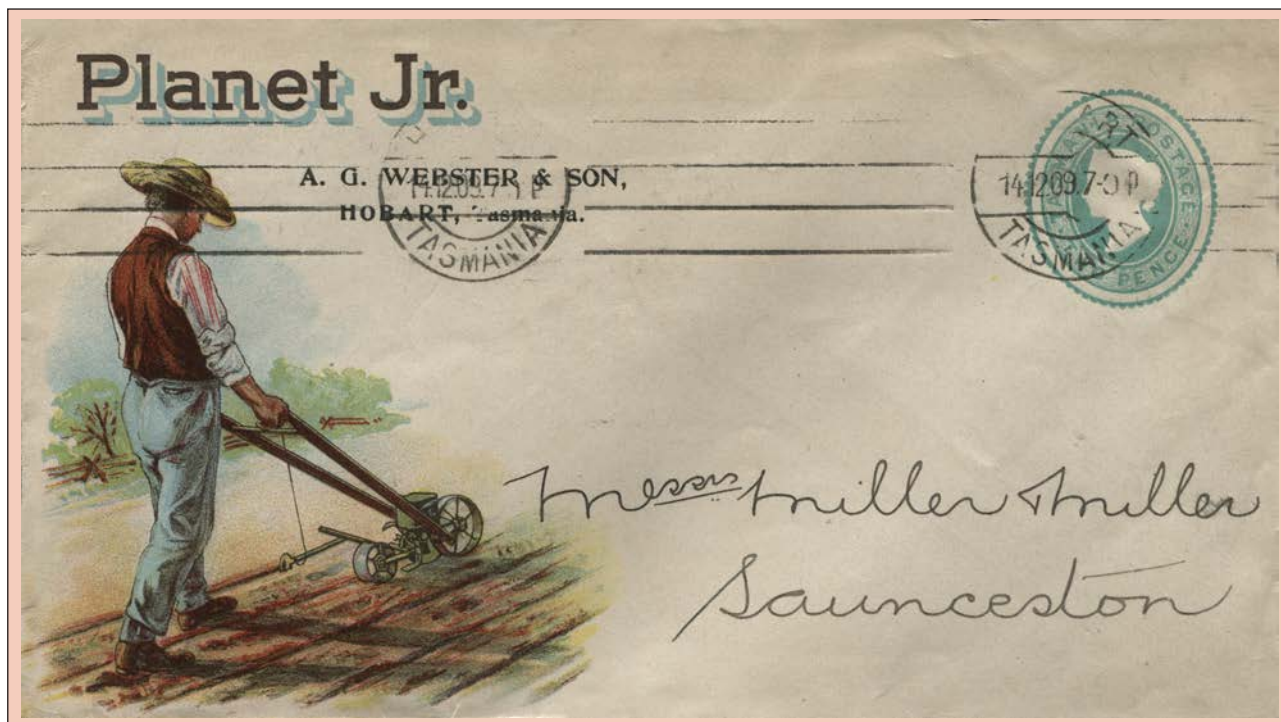 Planet Jr.
A. G. WEBSTER & SON,
HOBART, Tasmania.
14.12.09.7- P
TASMANIA
ART
14.12.09.7- P
TASMANIA
POSTAGE
PENCE
Messrs Miller & Miller
Launceston